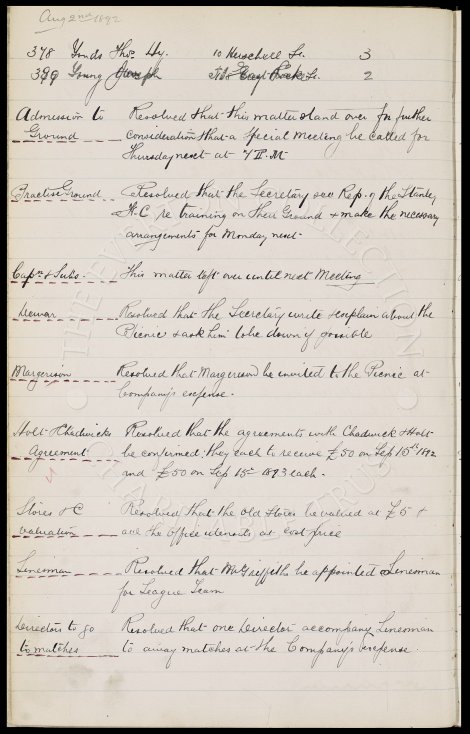 Aug 2nd 1892
378 Yonds Thos. Hy. 10 Herschell St. 3
399 Young Joseph St. 2
Admission to Resolved that this matter stand over for further
Ground consideration & that a special meeting be called for
Thursday next at 7 P.M
Practise Ground Resolved that the Secretary see Rep. of the Stanley
F.C re training on their Ground & make the necessary
arrangements for Monday next.
Capn & Subs This matter left over until next Meeting
Dewar Resolved that the Secretary write & explain about the
Picnic & ask him to be down if possible
Margerison Resolved that Margerison be invited to the Picnic at
Company's expense.
Holt & Chadwicks Resolved that the agreements with Chadwick & Holt
Agreement be confirmed, they each to receive £50 on Sep 15th 1892
and £50 on Sep 15th 1893 each.
Stores &C Resolved that the old stores be valued at £5 &
valuation all the office utensils at cost price
Linesman Resolved that Mr Griffiths be appointed Linesman
for League Team
Directors to go Resolved that one Director accompany Linesman
to matches to away matches at the Company's expense.
THE EVERTON COLLECTION
CHARITABLE TRUST